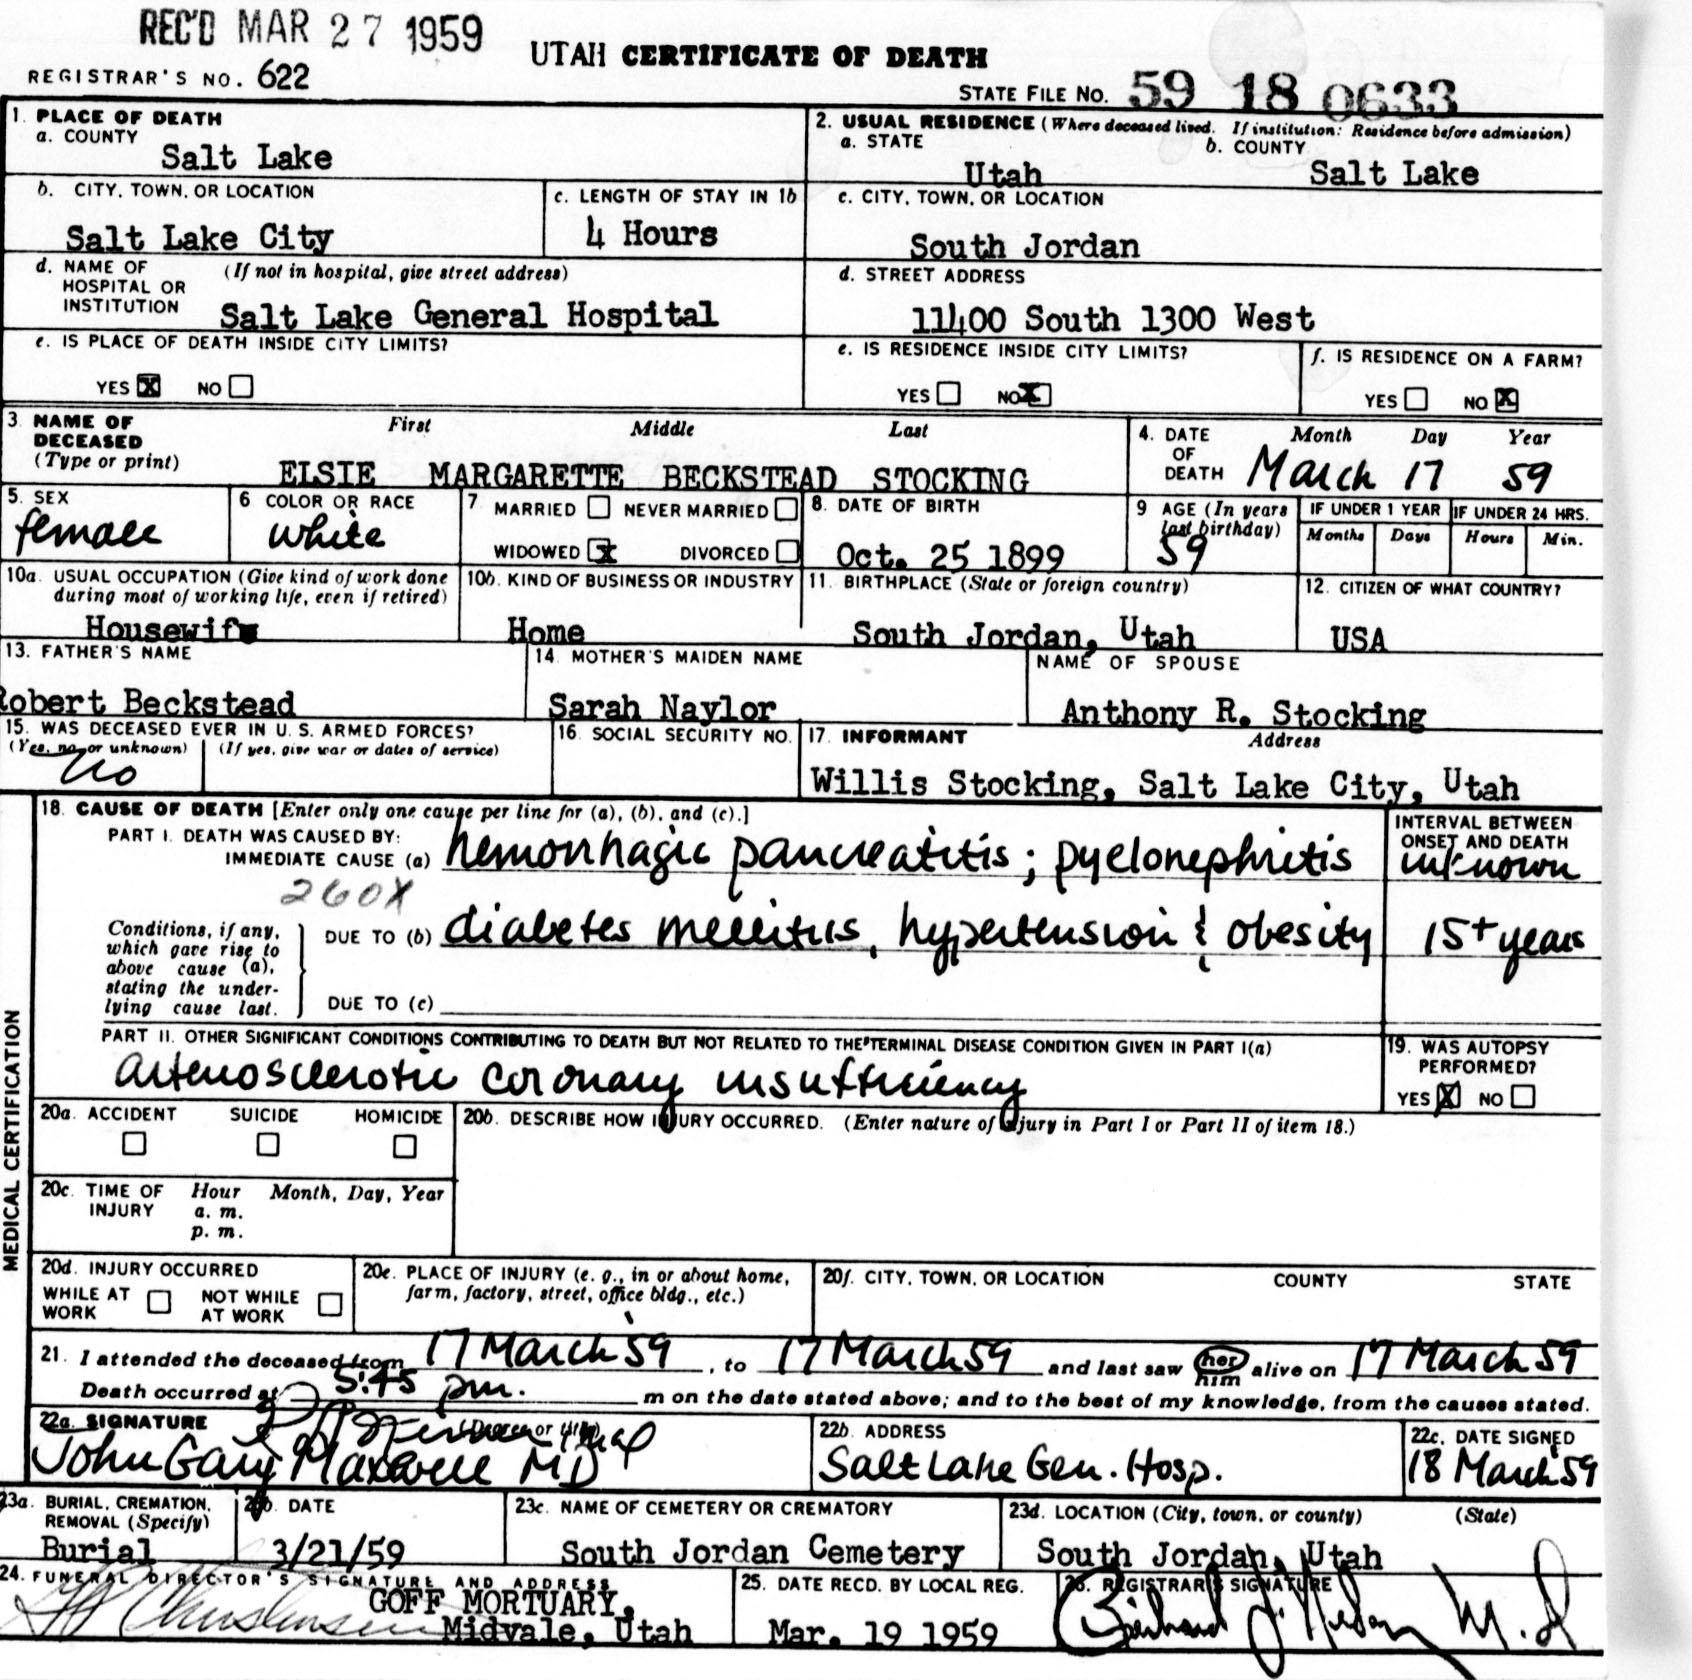 REC'D MAR 27 1959
UTAH CERTIFICATE OF DEATH
REGISTRAR'S NO. 622
STATE FILE NO. 59 18 0633
1. PLACE OF DEATH
a. COUNTY
Salt Lake
2. USUAL RESIDENCE (Where deceased lived. If institution: Residence before admission)
a. STATE b. COUNTY
Utah Salt Lake
b. CITY, TOWN, OR LOCATION
Salt Lake City
c. LENGTH OF STAY IN 1b
4 Hours
c. CITY, TOWN, OR LOCATION
South Jordan
d. NAME OF HOSPITAL OR INSTITUTION (If not in hospital, give street address)
Salt Lake General Hospital
d. STREET ADDRESS
11400 South 1300 West
e. IS PLACE OF DEATH INSIDE CITY LIMITS?
YES X NO
e. IS RESIDENCE INSIDE CITY LIMITS?
YES NO X
f. IS RESIDENCE ON A FARM?
YES NO X
3. NAME OF DECEASED (Type or print)
First Middle Last
ELSIE MARGARETTE BECKSTEAD STOCKING
4. DATE OF DEATH
Month Day Year
March 17 59
5. SEX
female
6. COLOR OR RACE
white
7. MARRIED NEVER MARRIED
WIDOWED X DIVORCED
8. DATE OF BIRTH
Oct. 25 1899
9. AGE (In years last birthday)
59
IF UNDER 1 YEAR IF UNDER 24 HRS.
Months Days Hours Min.
10a. USUAL OCCUPATION (Give kind of work done during most of working life, even if retired)
Housewife
10b. KIND OF BUSINESS OR INDUSTRY
Home
11. BIRTHPLACE (State or foreign country)
South Jordan, Utah
12. CITIZEN OF WHAT COUNTRY?
USA
13. FATHER'S NAME
Robert Beckstead
14. MOTHER'S MAIDEN NAME
Sarah Naylor
NAME OF SPOUSE
Anthony R. Stocking
15. WAS DECEASED EVER IN U. S. ARMED FORCES?
(Yes, no, or unknown) (If yes, give war or dates of service)
no
16. SOCIAL SECURITY NO.
17. INFORMANT Address
Willis Stocking, Salt Lake City, Utah
MEDICAL CERTIFICATION
18. CAUSE OF DEATH [Enter only one cause per line for (a), (b), and (c).]
PART I. DEATH WAS CAUSED BY:
IMMEDIATE CAUSE (a) hemorrhagic pancreatitis; pyelonephritis
INTERVAL BETWEEN ONSET AND DEATH
unknown
260X
Conditions, if any, which gave rise to above cause (a), stating the underlying cause last.
DUE TO (b) diabetes mellitus, hypertension & obesity
15+ years
DUE TO (c)
PART II. OTHER SIGNIFICANT CONDITIONS CONTRIBUTING TO DEATH BUT NOT RELATED TO THE TERMINAL DISEASE CONDITION GIVEN IN PART I(a)
arteriosclerotic coronary insufficiency
19. WAS AUTOPSY PERFORMED?
YES X NO
20a. ACCIDENT SUICIDE HOMICIDE
20b. DESCRIBE HOW INJURY OCCURRED. (Enter nature of injury in Part I or Part II of item 18.)
20c. TIME OF INJURY Hour Month, Day, Year
a. m.
p. m.
20d. INJURY OCCURRED
WHILE AT WORK NOT WHILE AT WORK
20e. PLACE OF INJURY (e. g., in or about home, farm, factory, street, office bldg., etc.)
20f. CITY, TOWN, OR LOCATION COUNTY STATE
21. I attended the deceased from 17 March 59, to 17 March 59 and last saw her him alive on 17 March 59
Death occurred at 5:45 pm. m on the date stated above; and to the best of my knowledge, from the causes stated.
22a. SIGNATURE (Degree or title)
John Gary Maxwell MD
22b. ADDRESS
Salt Lake Gen. Hosp.
22c. DATE SIGNED
18 March 59
23a. BURIAL, CREMATION, REMOVAL (Specify)
Burial
23b. DATE
3/21/59
23c. NAME OF CEMETERY OR CREMATORY
South Jordan Cemetery
23d. LOCATION (City, town, or county) (State)
South Jordan, Utah
24. FUNERAL DIRECTOR'S SIGNATURE AND ADDRESS
GOFF MORTUARY,
Midvale, Utah
25. DATE RECD. BY LOCAL REG.
Mar. 19 1959
26. REGISTRAR'S SIGNATURE
M.D